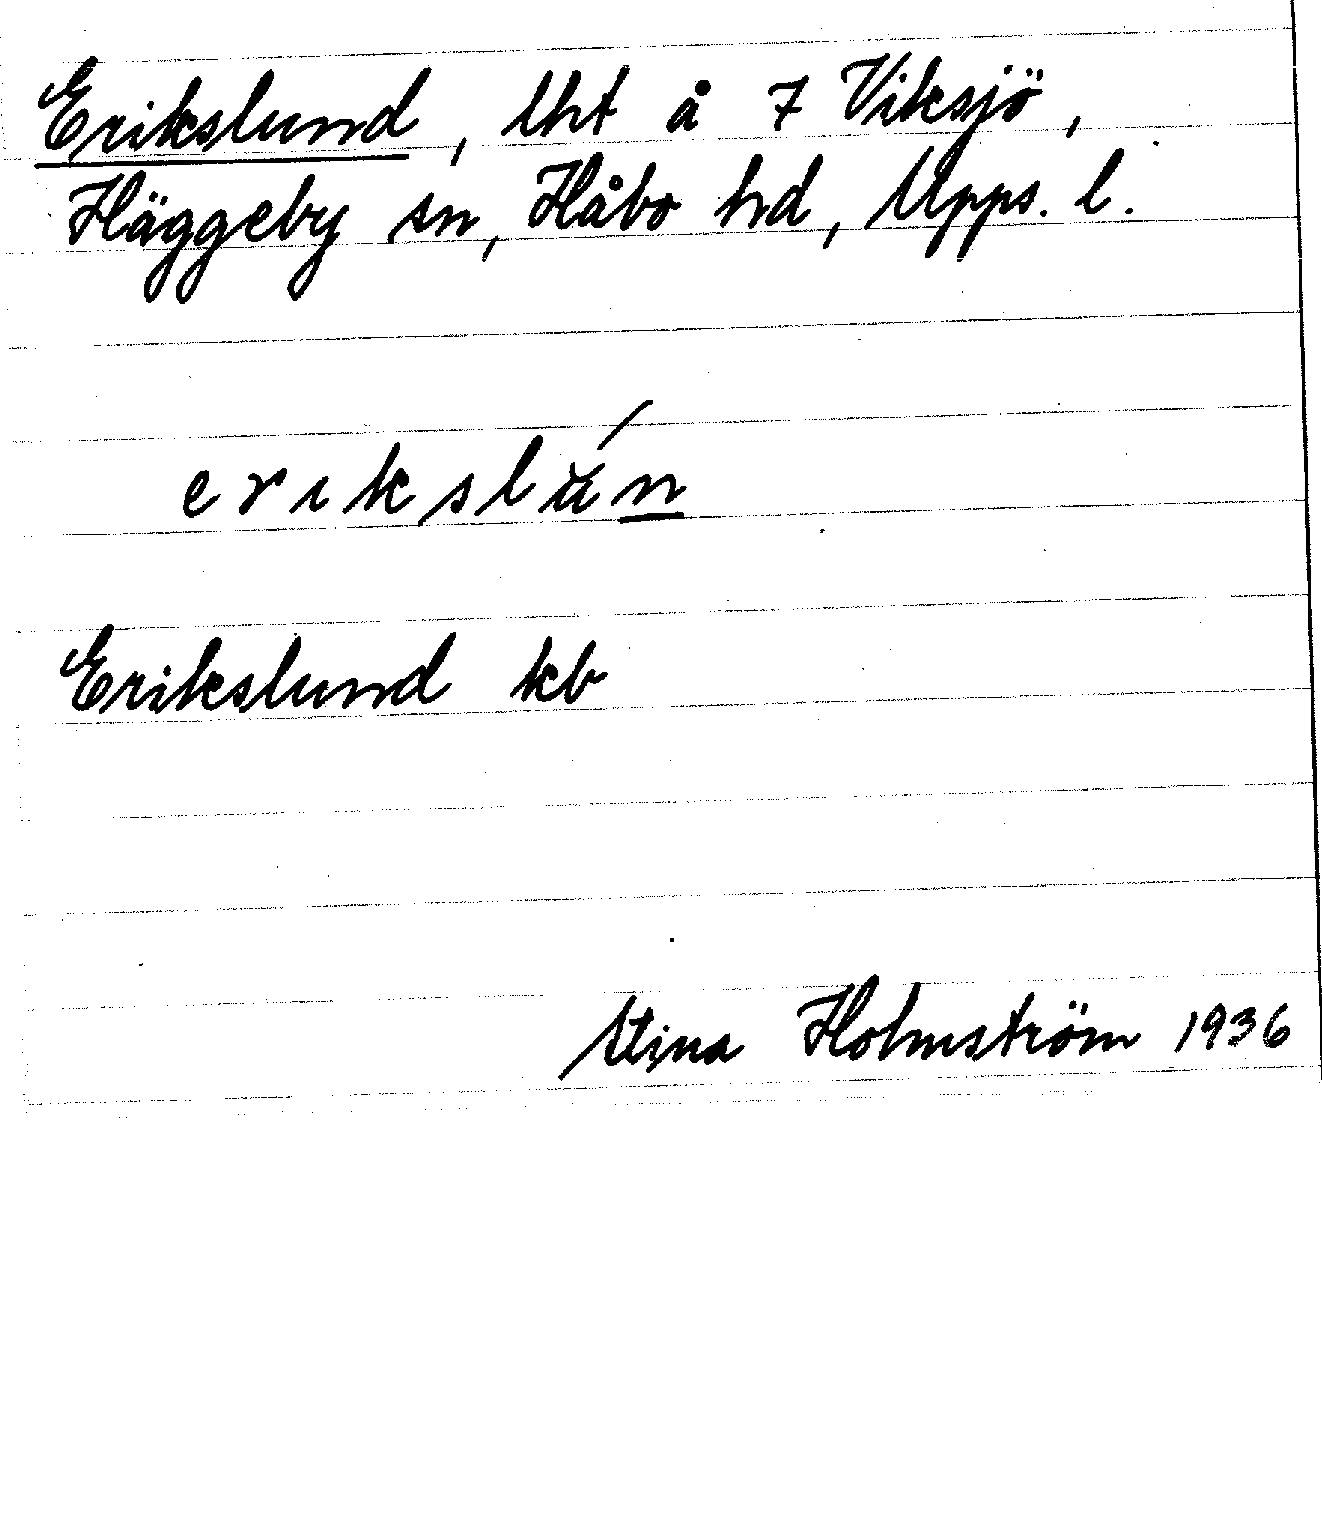 Erikslund, lht å 7 Viksjö,
Häggeby sn, Håbo hd, Upps. l.
Erikslund kb
Holmström 1936